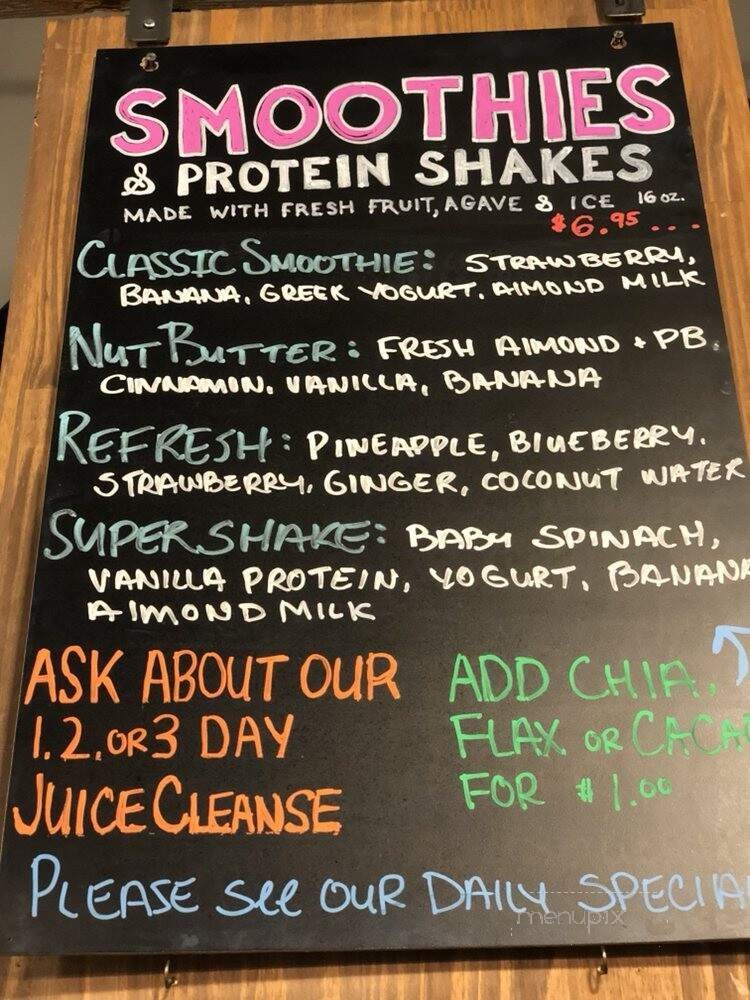 SMOOTHIES
& PROTEIN SHAKES
MADE WITH FRESH FRUIT, AGAVE & ICE 16 oz.
$6.95...
CLASSIC SMOOTHIE: STRAWBERRY,
BANANA, GREEK YOGURT, ALMOND MILK
NUT BUTTER: FRESH ALMOND + PB.
CINNAMIN, VANILLA, BANANA
REFRESH: PINEAPPLE, BLUEBERRY.
STRAWBERRY, GINGER, COCONUT WATER
SUPER SHAKE: BABY SPINACH,
VANILLA PROTEIN, YOGURT, BANANA
ALMOND MILK
ASK ABOUT OUR
1.2.OR 3 DAY
JUICE CLEANSE
ADD CHIA,
FLAX OR CACAO
FOR $1.00
PLEASE See OUR DAILY SPECIA
menupix